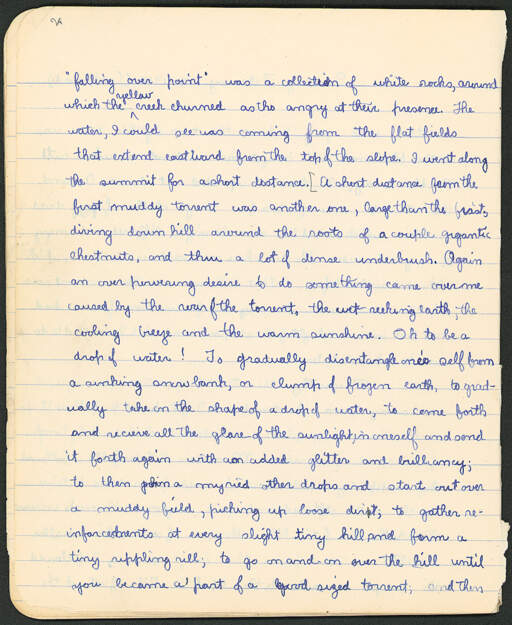 "falling over point" was a collection of white rocks, around
which the yellow creek churned as tho angry at their presence. The
water, I could see was coming from the flat fields
that extend eastward from the top of the slope. I went along
the summit for a short distance. [A short distance from the
first muddy torrent was another one, large than the first,
diving down hill around the roots of a couple gigantic
chestnuts, and thru a lot of dense underbrush. Again
an over powering desire to do something came over me
caused by the roar of the torrent, the wet reeking earth, the
cooling breeze and the warm sunshine. Oh to be a
drop of water! To gradually disentangle one's self from
a sinking snow bank, or clump of frozen earth, to grad-
ually take on the shape of a drop of water, to come forth
and recieve all the glare of the sunlight, in oneself and send
it forth again with an added glitter and brilliancy;
to then join a myried other drops and start out over
a muddy field, picking up loose dirt; to gather re-
inforcedments at every slight tiny hill and form a
tiny rippling rill; to go on and on over the hill until
you became a part of a good sized torrent; and then